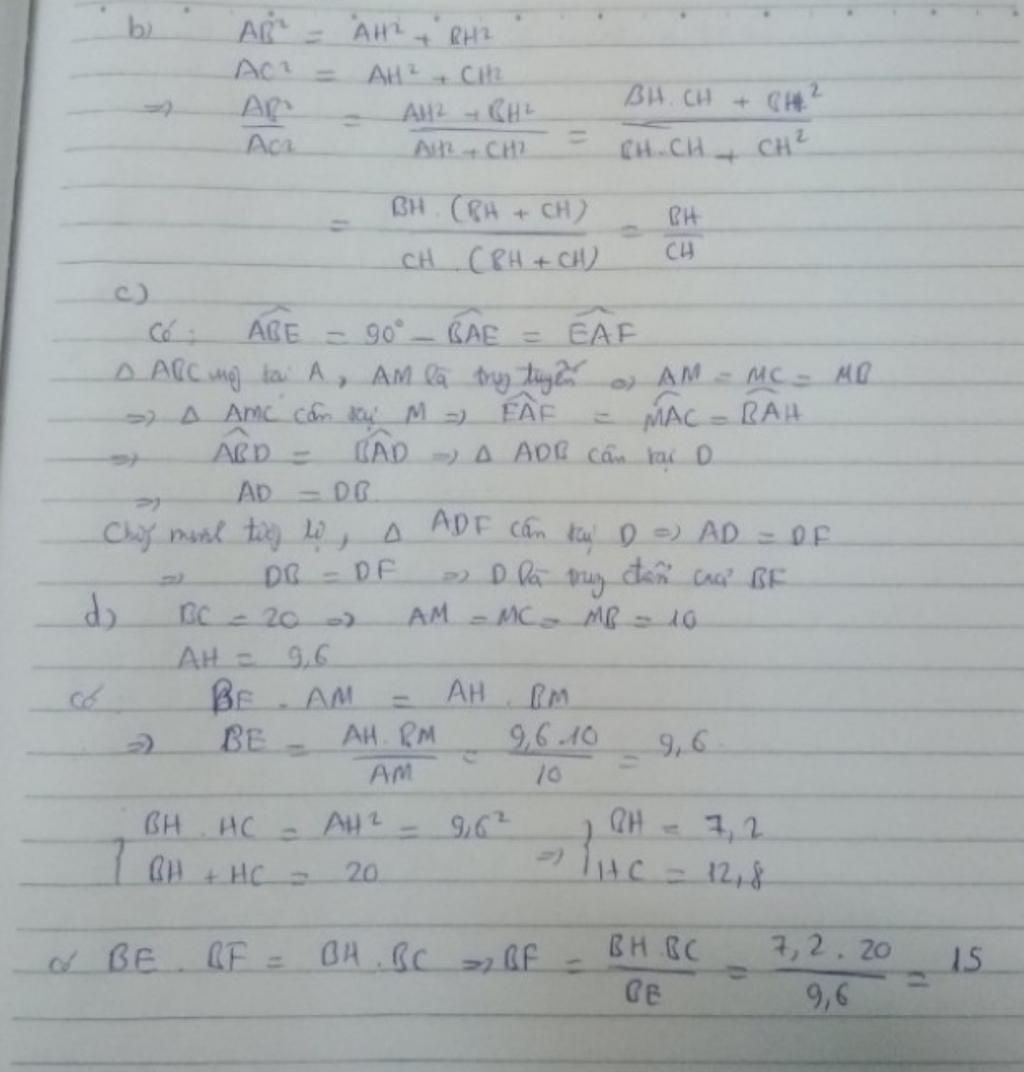 b) AB² = AH² + BH²
AC² = AH² + CH²
=> AB²/AC² = (AH² + BH²)/(AH² + CH²) = (BH.CH + BH²)/(BH.CH + CH²)
= BH.(BH + CH)/CH.(BH + CH) = BH/CH
c)
Có: ABE = 90° - BAE = EAF
Δ ABC vuông tại A, AM là trung tuyến => AM = MC = MB
=> Δ AMC cân tại M => EAF = MAC = BAH
=> ABD = BAD => Δ ADB cân tại D
=> AD = DB
Chứng minh tương tự, Δ ADF cân tại D => AD = DF
=> DB = DF => D là trung điểm của BF
d) BC = 20 => AM = MC = MB = 10
AH = 9,6
có BE . AM = AH . BM
=> BE = AH.BM/AM = 9,6.10/10 = 9,6
{ BH . HC = AH² = 9,6² => { BH = 7,2
BH + HC = 20 HC = 12,8
BE . BF = BH . BC => BF = BH.BC/BE = 7,2.20/9,6 = 15